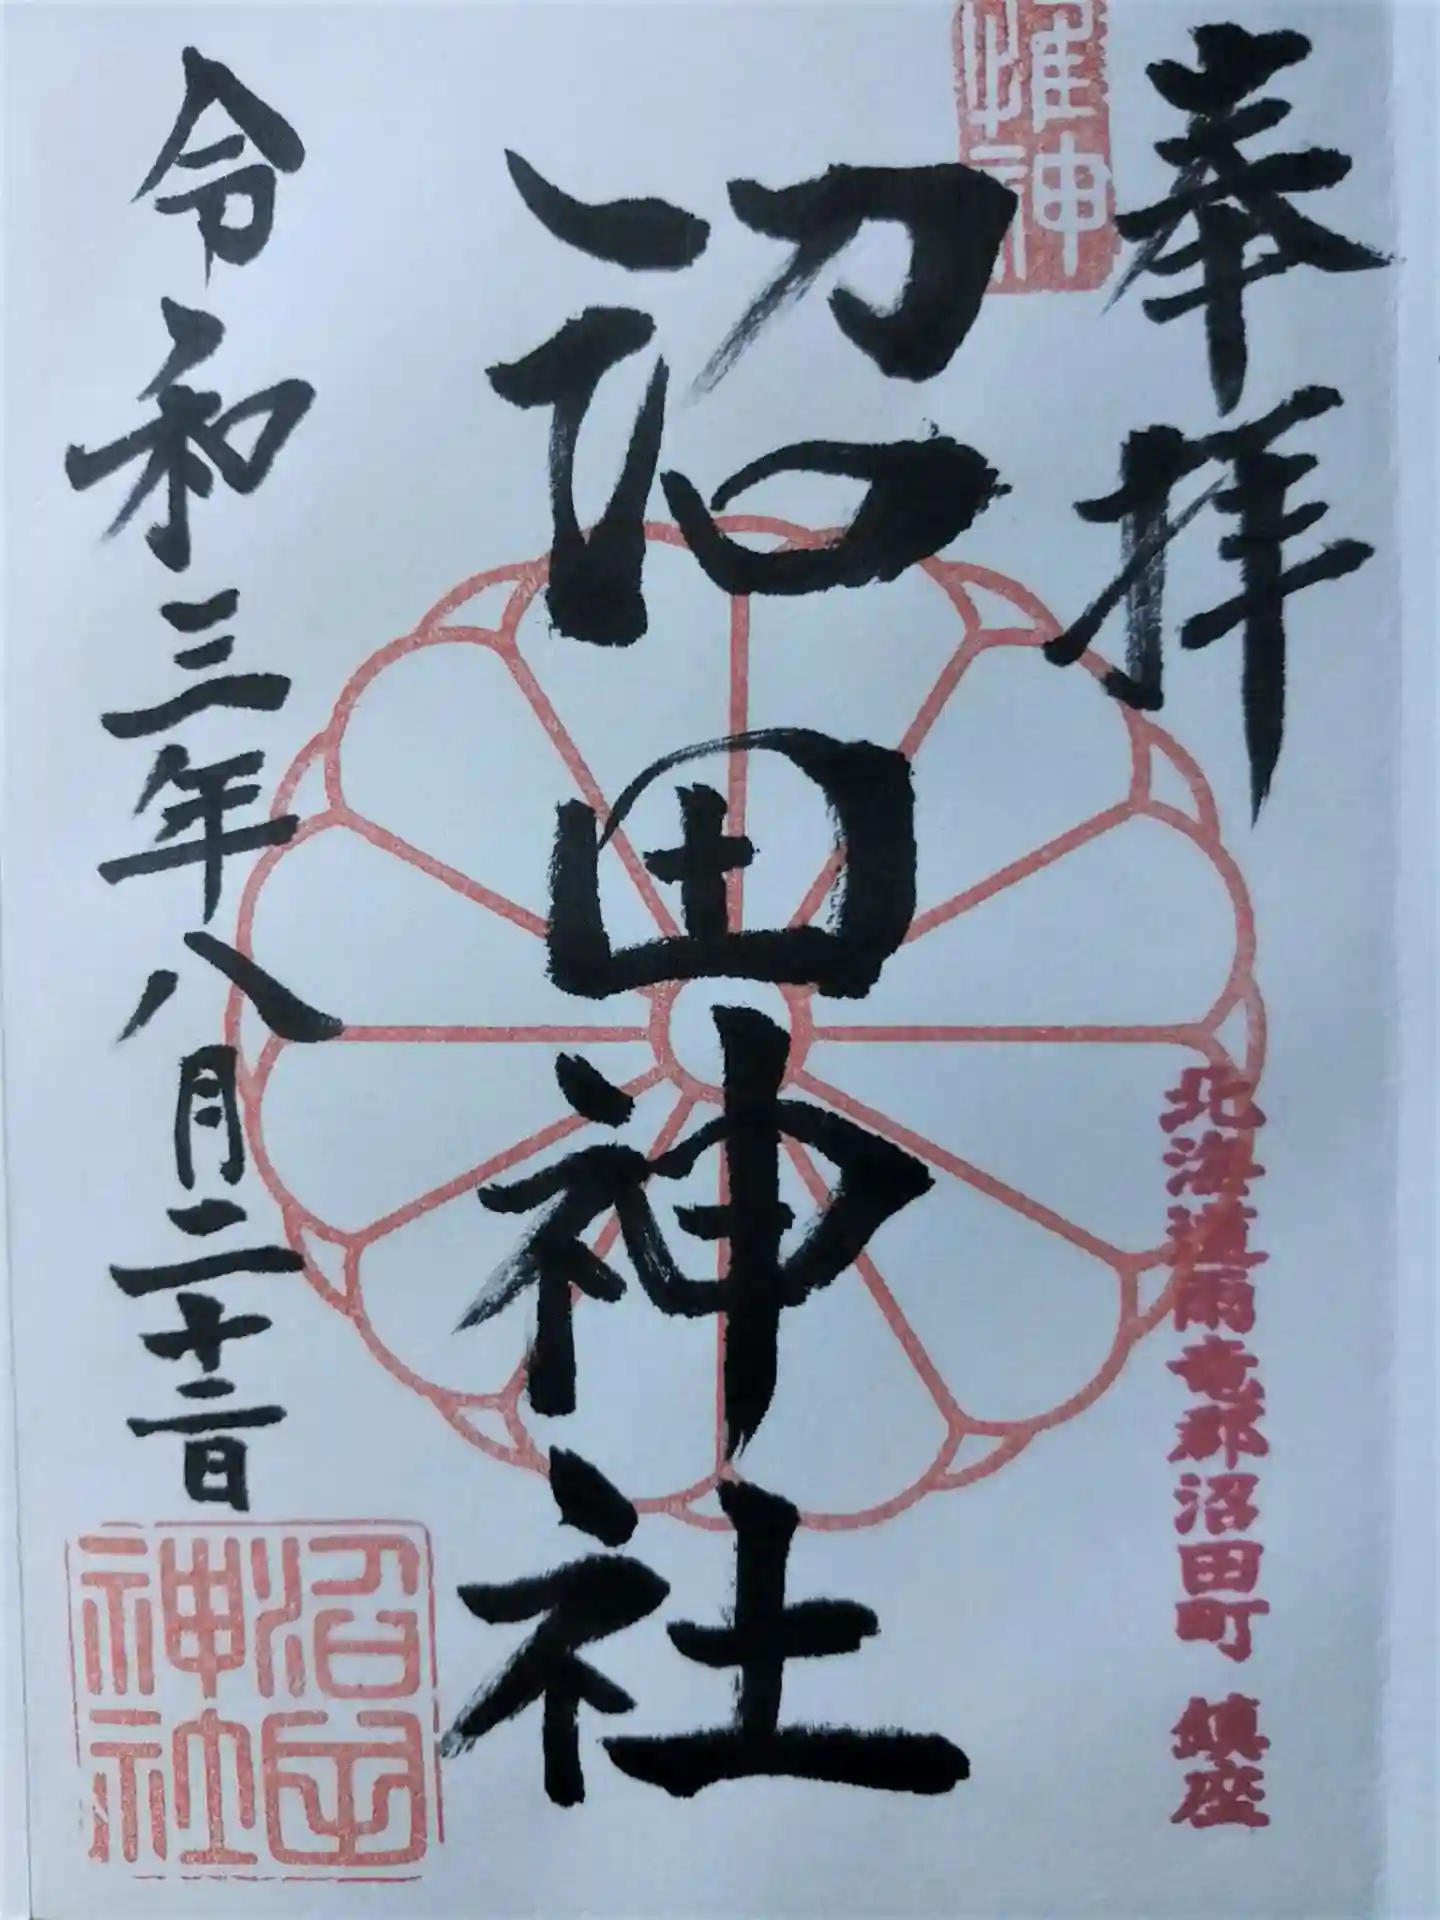 惟神
奉拝
北海道雨竜郡沼田町 鎮座
沼田神社
令和三年八月二十二日
沼田
神社